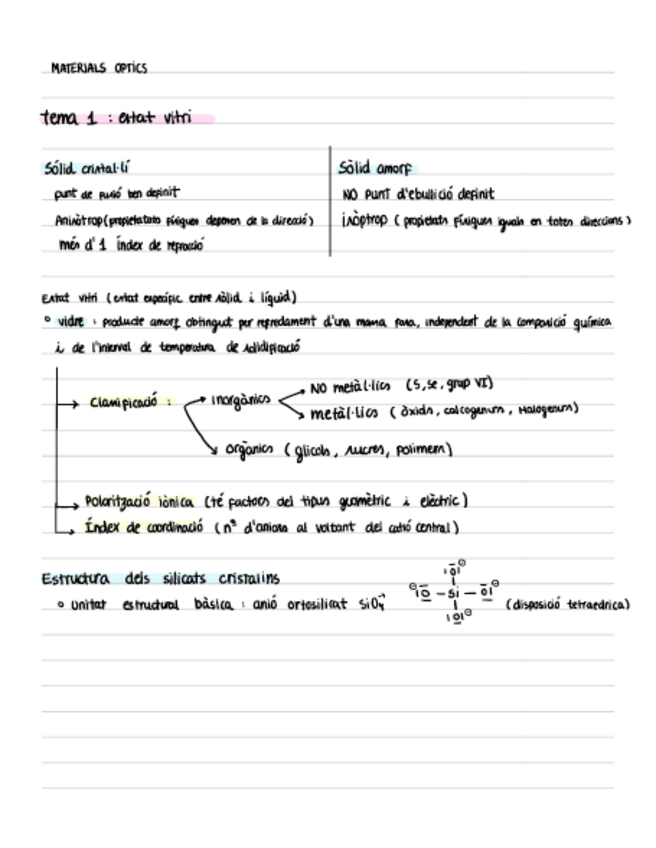 MATERIALS OPTICS
tema 1 : estat vitri
Sólid cristal·lí
punt de fusió ben definit
Anisòtrop (propietats físiques depenen de la direcció)
més d'1 índex de refracció
Sòlid amorf
NO punt d'ebullició definit
isòptrop ( propietats físiques iguals en totes direccions)
Estat vitri (estat específic entre sòlid i líquid)
° vidre : producte amorf obtingut per refredament d'una massa fosa, independent de la composició química
i de l'interval de temperatura de solidificació
→ Classificació :
inorgànics
NO metàl·lics (S, Se, grup VI)
metàl·lics ( òxids, calcogenurs, Halogenurs)
orgànics ( glicols, sucres, polimers)
→ Polarització iònica (té factors del tipus geomètric i elèctric)
→ Índex de coordinació (nº d'anions al voltant del catió central)
Estructura dels silicats cristalins
° Unitat estructural bàsica : anió ortosilicat SiO₄⁴⁻
|O|⊖
⊖|O – Si – O|⊖ (disposició tetraedrica)
|O|⊖